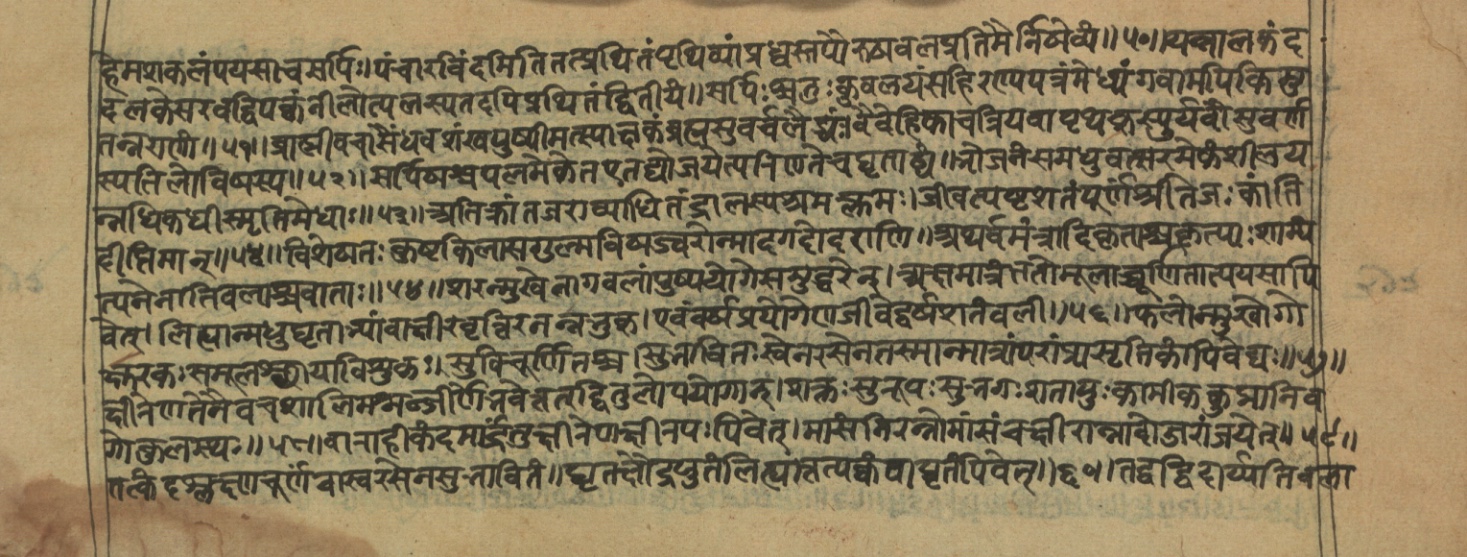 हेमशकलंपयसाचसर्पिः। पंचारविंदमितितत्प्रथितंपृथिव्यांप्रध्वस्तपौरुषबलप्रतिभैर्निषेव्यं॥५०॥यन्नालकंद
दलकेसरवद्विपक्वंनीलोत्पलस्यतदपिप्रथितंद्वितीयं॥सर्पिःश्चतुःकुवलयंसहिरण्यपत्रंमेध्यंगवामपि
तन्नराणां॥५१॥ब्राह्मीवचासैंधवशंखपुष्पीमत्स्याक्षकंब्रह्मसुवर्चलैंद्र्यः।वैदेहिकाचत्रियवापृथक्स्युर्यवौसुवर्ण
स्यतिलोविषस्य॥५२॥सर्पिषश्चपलमेकतएतद्योजयेत्परिणतेचघृताढ्यं॥भोजनंसमधुवत्सरमेकंशीलय
न्नधिकधीस्मृतिमेधाः॥५३॥अतिक्रांतजराव्याधितंद्रालस्यश्रमक्लमः।जीवत्यष्टशतंपूर्णं कांति
दीप्तिमान्॥५४॥विशेषतःकुष्टकिलासगुल्मविषज्वरोन्मादगदोदराणि॥अथर्वमंत्रादिकृताश्चकृत्याःशाम्यं
त्यनेनातिबलाश्चवाताः॥५५॥शरन्मुखेनागबलांपुष्ययोगेसमुद्धरेत्।अक्षमात्रंततोमूलाच्चूर्णितात्पयसापि
बेत्। लिह्यान्मधुघृताभ्यांवाक्षीरवृत्तिरनन्नभुक्।एवंवर्षप्रयोगेणजीवेद्वर्षशतंबली॥५६॥फलोन्मुखोगो
क्षुरकःसमूलश्छायाविशुष्कः। सुविचूर्णितश्च।सुभावितःस्वेनरसेनतस्मान्मात्रांपरांप्रासृतिकींपिबेद्यः॥५७॥
क्षीरेणतेनैवचशालिमश्नन्जीर्णेभवेत्सद्वितुलोपयोगात्।शक्तःसुरूपःसुभगःशतायुःकामीककुद्मानिव
गोकुलस्थः॥५८॥वाराहीकंदमार्द्रार्द्रंक्षीरेणक्षीरपःपिबेत्।मासंनिरन्नोमासंचक्षीरान्नादोजरांजयेत्॥५९॥
तत्कंदश्लक्ष्णचूर्णंवास्वरसेनसुभावितं॥घृतक्षौद्रप्लुतंलिह्यात्तत्पक्वंवाघृतंपिबेत्॥६०।तद्वद्विदार्य्यतिबला